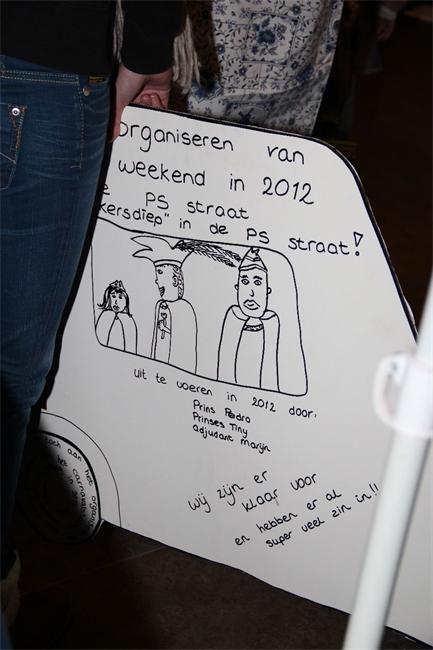 organiseren van
weekend in 2012
PS straat
kersdiep" in de PS straat!
uit te voeren in 2012 door:
Prins Pedro
Prinses Tiny
adjudant Marijn
wij zijn er
klaar voor
en hebben er al
super veel zin in!!
noch aan het organis
het carnaval